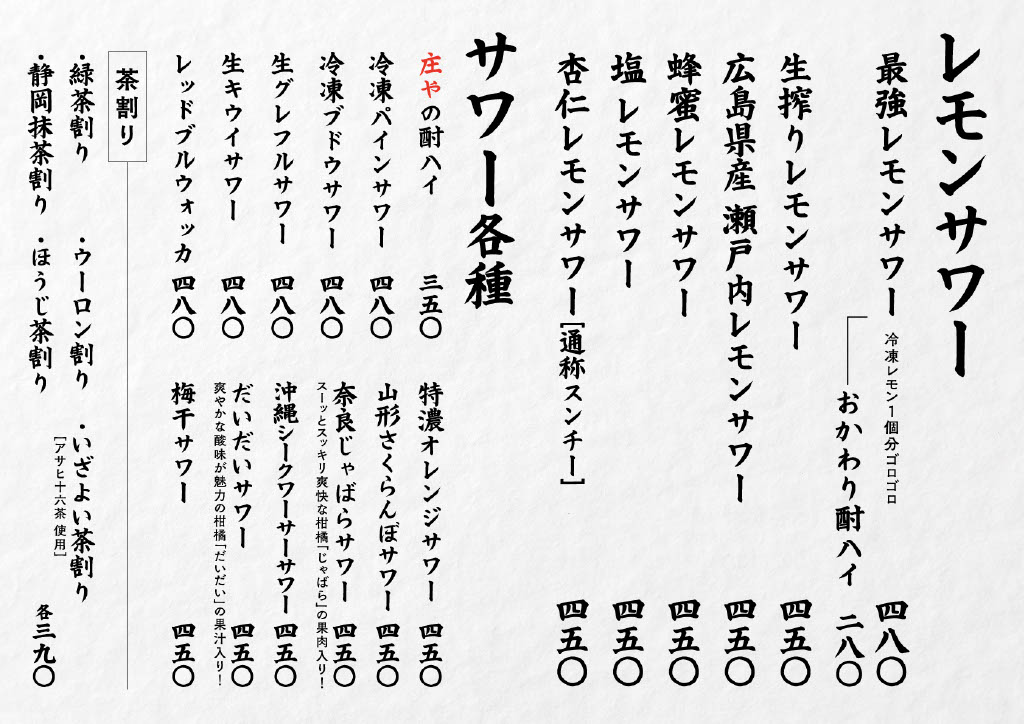 レモンサワー
最強レモンサワー 冷凍レモン1個分ゴロゴロ 四八〇
おかわり酎ハイ 二八〇
生搾りレモンサワー 四五〇
広島県産 瀬戸内レモンサワー 四五〇
蜂蜜レモンサワー 四五〇
塩レモンサワー 四五〇
杏仁レモンサワー[通称スンチー] 四五〇
サワー各種
庄やの酎ハイ 三五〇
冷凍パインサワー 四八〇
冷凍ブドウサワー 四八〇
生グレフルサワー 四八〇
生キウイサワー 四八〇
レッドブルウォッカ 四八〇
特濃オレンジサワー 四五〇
山形さくらんぼサワー 四五〇
奈良じゃばらサワー 四五〇
スーッとスッキリ爽快な柑橘「じゃばら」の果肉入り!
沖縄シークワーサーサワー 四五〇
だいだいサワー 四五〇
爽やかな酸味が魅力の柑橘「だいだい」の果汁入り!
梅干サワー 四五〇
茶割り
・緑茶割り ・ウーロン割り ・いざよい茶割り
[アサヒ十六茶 使用]
・静岡抹茶割り ・ほうじ茶割り
各三九〇